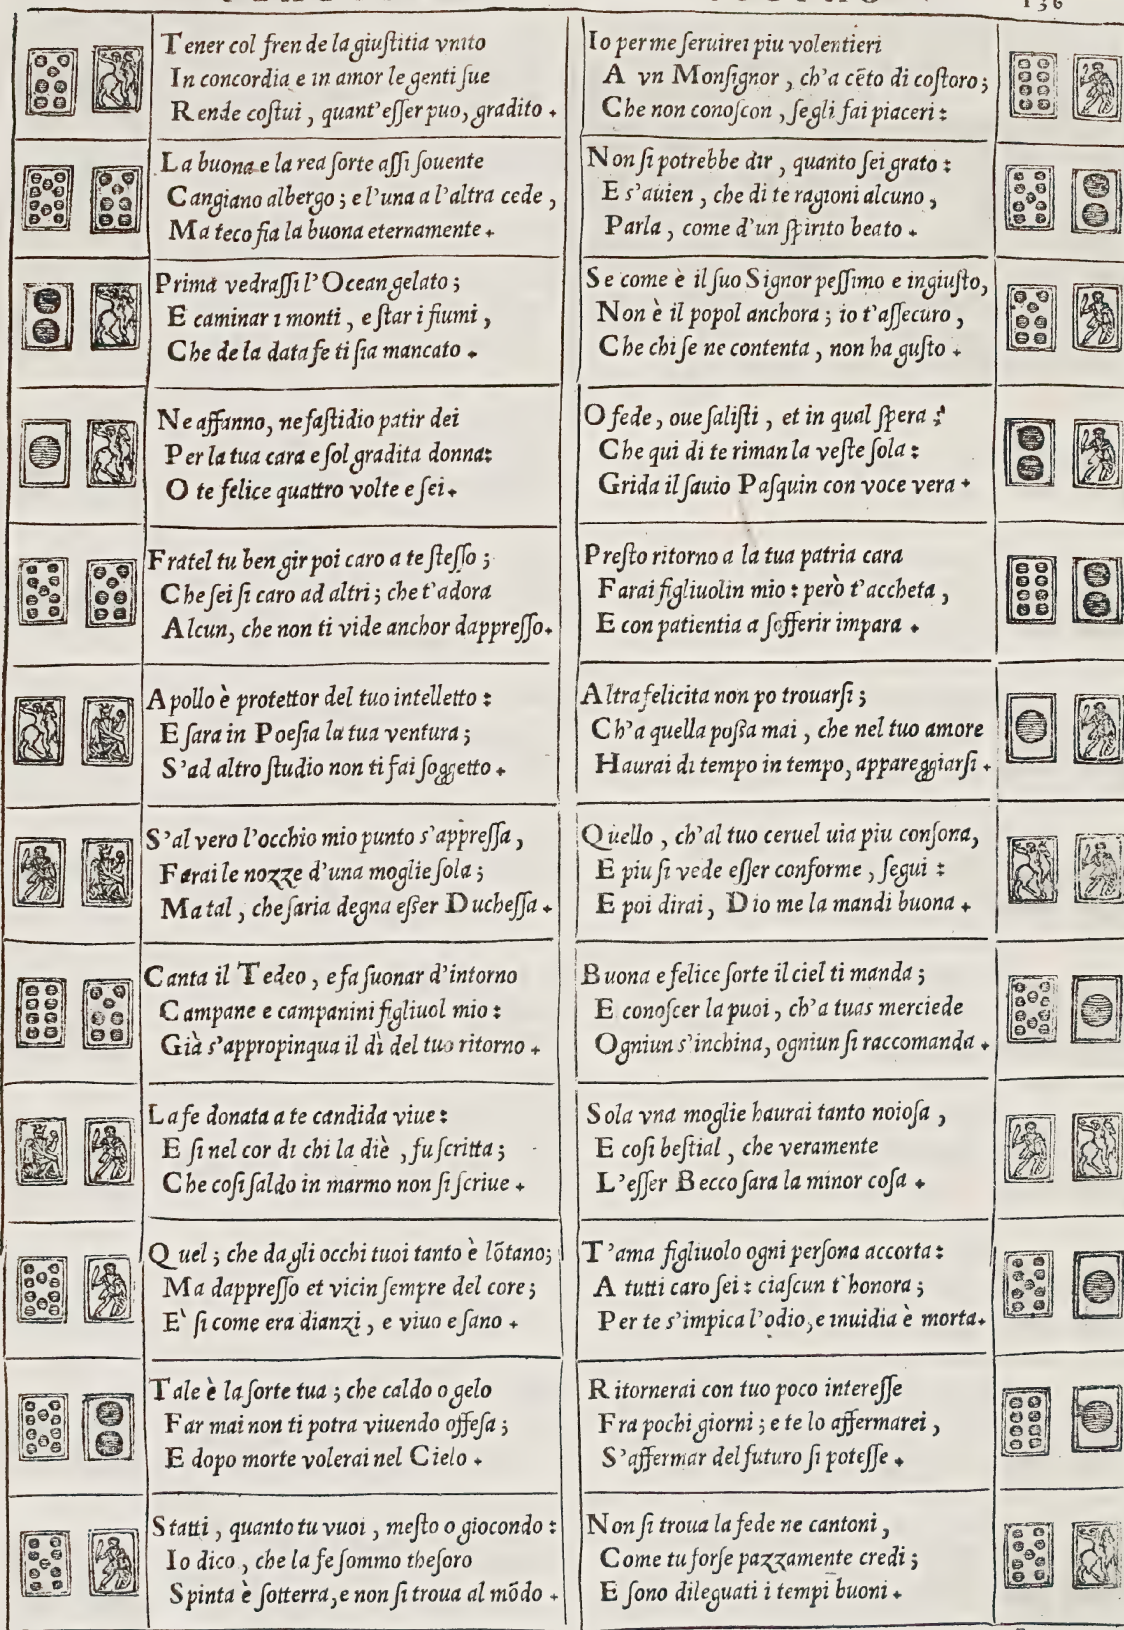 136
Tener col fren de la giuſtitia vnito
In concordia e in amor le genti ſue
Rende coſtui, quant'eſſer puo, gradito.
La buona e la rea ſorte aſſi ſouente
Cangiano albergo; e l'una a l'altra cede,
Ma teco fia la buona eternamente.
Prima vedraſſi l'Ocean gelato;
E caminar i monti, e ſtar i fiumi,
Che de la data fe ti ſia mancato.
Ne affanno, ne faſtidio patir dei
Per la tua cara e ſol gradita donna:
O te felice quattro volte e ſei.
Fratel tu ben gir poi caro a te ſteſſo;
Che ſei ſi caro ad altri; che t'adora
Alcun, che non ti vide anchor dappreſſo.
Apollo è protettor del tuo intelletto:
E ſara in Poeſia la tua ventura;
S'ad altro ſtudio non ti fai ſoggetto.
S'al vero l'occhio mio punto s'appreſſa,
Farai le nozze d'una moglie ſola;
Ma tal, che ſaria degna eſſer Ducheſſa.
Canta il Tedeo, e fa ſuonar d'intorno
Campane e campanini figliuol mio:
Già s'appropinqua il dì del tuo ritorno.
La fe donata a te candida viue:
E ſi nel cor di chi la diè, fu ſcritta;
Che coſi ſaldo in marmo non ſi ſcriue.
Quel; che da gli occhi tuoi tanto è lōtano;
Ma dappreſſo et vicin ſempre del core;
E` ſi come era dianzi, e viuo e ſano.
Tale è la ſorte tua; che caldo o gelo
Far mai non ti potra viuendo offeſa;
E dopo morte volerai nel Cielo.
Statti, quanto tu vuoi, meſto o giocondo:
Io dico, che la fe ſommo theſoro
Spinta è ſotterra, e non ſi troua al mōdo.
Io per me ſeruirei piu volentieri
A vn Monſignor, ch'a cēto di coſtoro;
Che non conoſcon, ſe gli fai piaceri:
Non ſi potrebbe dir, quanto ſei grato:
E s'auien, che di te ragioni alcuno,
Parla, come d'un ſpirito beato.
Se come è il ſuo Signor peſſimo e ingiuſto,
Non è il popol anchora; io t'aſſecuro,
Che chi ſe ne contenta, non ha guſto.
O fede, oue ſaliſti, et in qual ſpera?
Che qui di te riman la veſte ſola:
Grida il ſauio Paſquin con voce vera.
Preſto ritorno a la tua patria cara
Farai figliuolin mio: però t'accheta,
E con patientia a ſofferir impara.
Altra felicita non po trouarſi;
Ch'a quella poſſa mai, che nel tuo amore
Haurai di tempo in tempo, appareggiarſi.
Quello, ch'al tuo ceruel uia piu conſona,
E piu ſi vede eſſer conforme, ſegui:
E poi dirai, Dio me la mandi buona.
Buona e felice ſorte il ciel ti manda;
E conoſcer la puoi, ch'a tuas merciede
Ogniun s'inchina, ogniun ſi raccomanda.
Sola vna moglie haurai tanto noioſa,
E coſi beſtial, che veramente
L'eſſer Becco ſara la minor coſa.
T'ama figliuolo ogni perſona accorta:
A tutti caro ſei: ciaſcun t'honora;
Per te s'impica l'odio, e inuidia è morta.
Ritornerai con tuo poco intereſſe
Fra pochi giorni; e te lo affermarei,
S'affermar del futuro ſi poteſſe.
Non ſi troua la fede ne cantoni,
Come tu forſe pazzamente credi;
E ſono dileguati i tempi buoni.